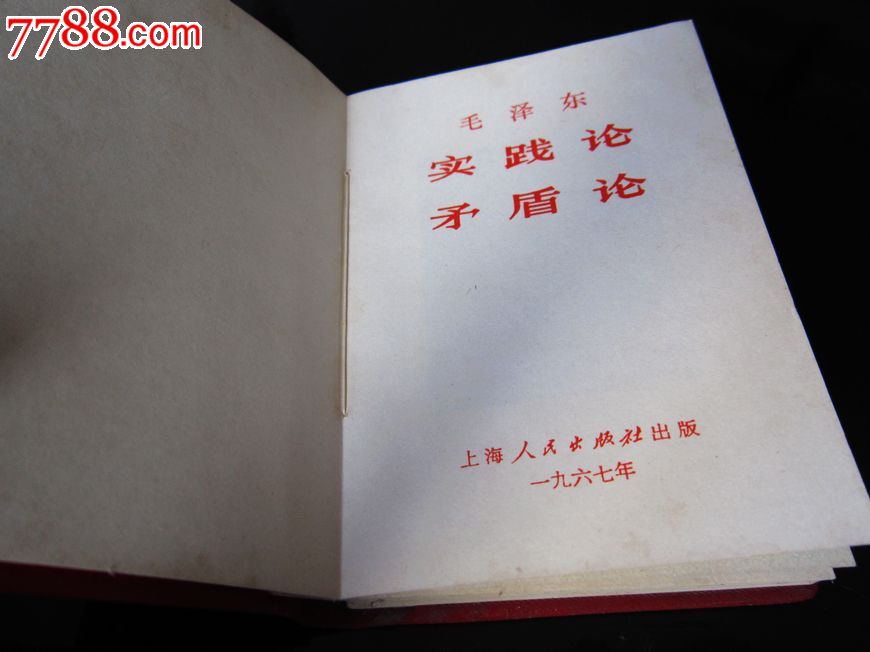 7788.com
毛泽东
实践论
矛盾论
上海人民出版社出版
一九六七年